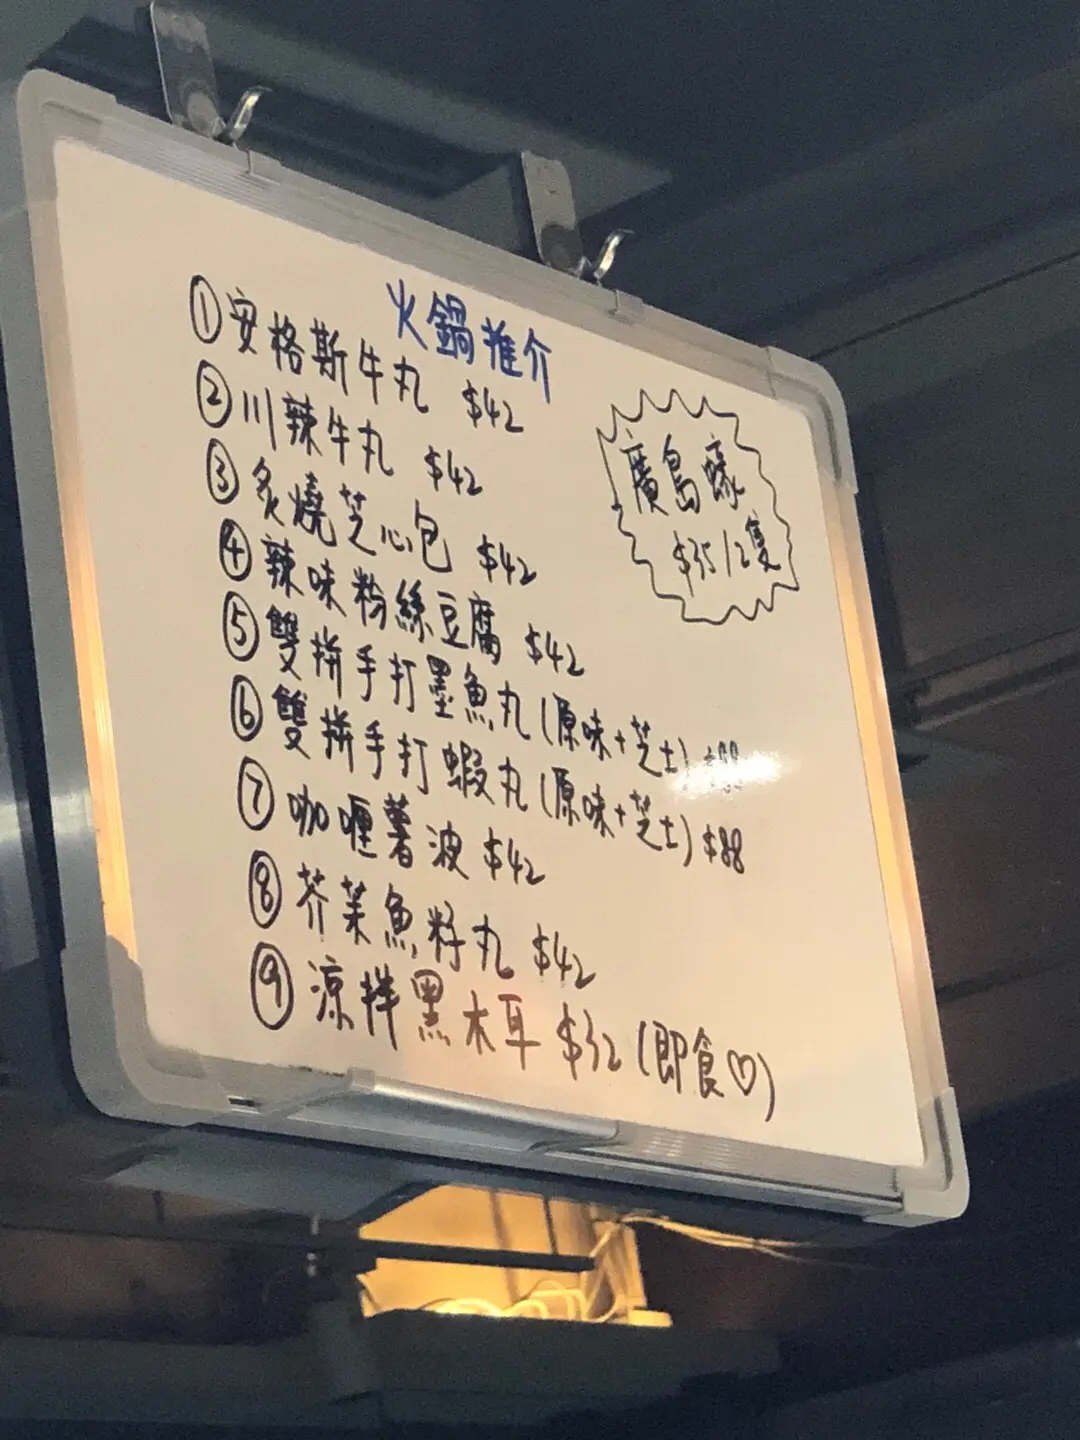 火鍋推介
①安格斯牛丸 $42
②川辣牛丸 $42
③炙燒芝心包 $42
④辣味粉絲豆腐 $42
⑤雙拼手打墨魚丸(原味+芝士) $88
⑥雙拼手打蝦丸(原味+芝士) $88
⑦咖喱薯波 $42
⑧芥茉魚籽丸 $42
⑨涼拌黑木耳 $32(即食♡)
廣島蠔
$35/2隻